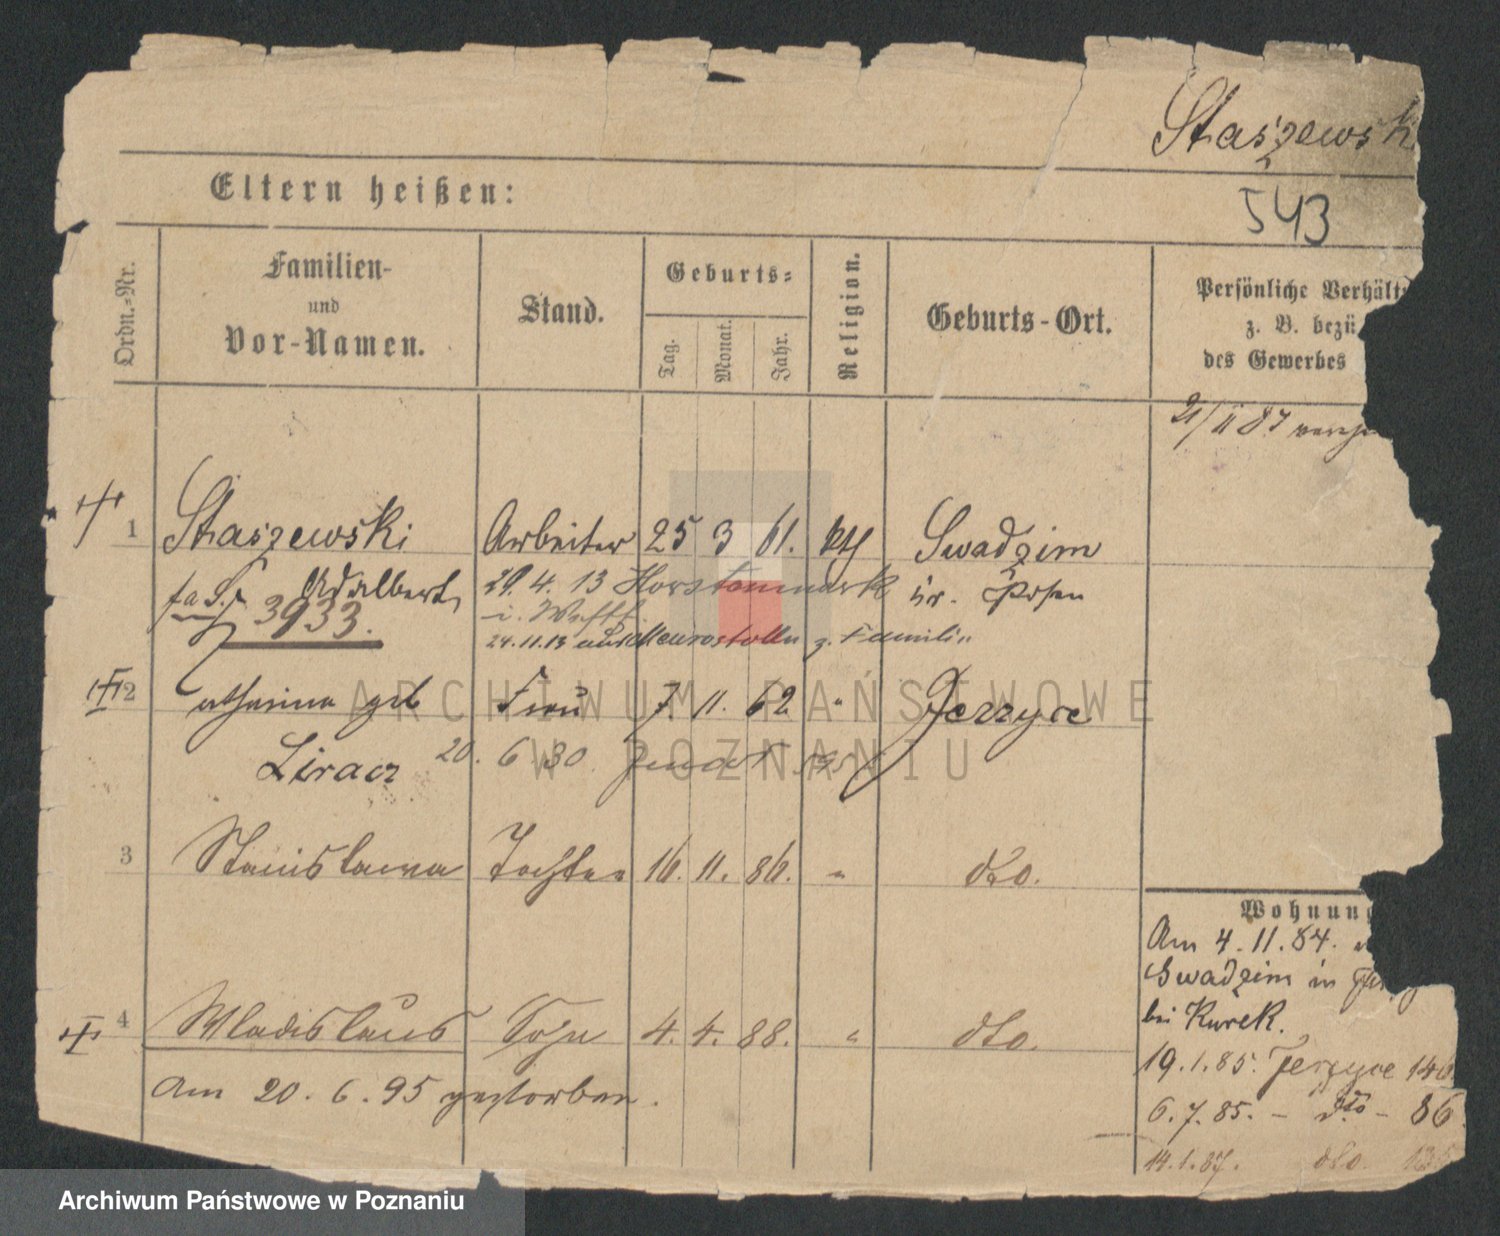 Staszewsk
543
Eltern heißen:
Ordn.-Nr.
Familien-
und
Vor-Namen.
Stand.
Geburts-
Tag.
Monat.
Jahr.
Religion.
Geburts-Ort.
Persönliche Verhält
z. B. bezü
des Gewerbes
21/11 87
1 Staszewski Arbeiter 25 3 61. kth Swadzim
Adalbert, 29. 4. 13 Kr. Posen
3933.
24.11.13 z. Familie
2 Catharina geb Frau 7. 11. 62 " Jerzyce
Liracz 20. 6 30
3 Stanislawa Tochter 16. 11. 86. " dto.
4 Wladislaus Sohn 4. 4. 88. " dto.
Am 20. 6. 95 gestorben.
Wohnung
Am 4. 11. 84.
Swadzim in
bei Kurek.
19.1.85. Jerzyce 146
6.7.85. - dto - 86
14.1.87. dto
ARCHIWUM PAŃSTWOWE
W POZNANIU
Archiwum Państwowe w Poznaniu